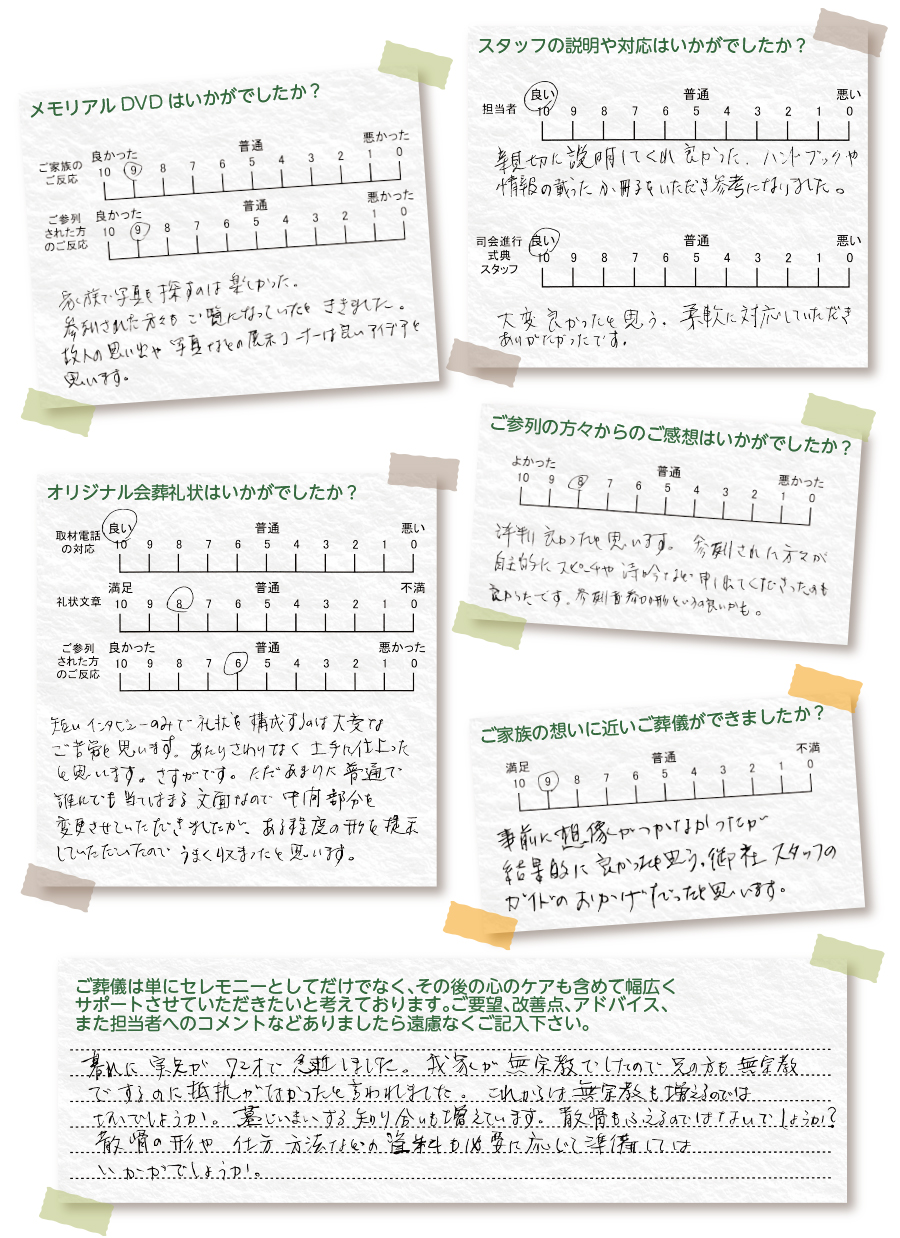 メモリアルDVDはいかがでしたか？
良かった 普通 悪かった
ご家族の
ご反応
10 9 8 7 6 5 4 3 2 1 0
良かった 普通 悪かった
ご参列
された方
のご反応
10 9 8 7 6 5 4 3 2 1 0
家族で写真を探すのは楽しかった。
参列された方々もご覧になっていたとききました。
故人の思い出や写真などの展示コーナーは良いアイデアと
思います。
スタッフの説明や対応はいかがでしたか？
良い 普通 悪い
担当者
10 9 8 7 6 5 4 3 2 1 0
親切に説明してくれ良かった。ハンドブックや
情報の載った小冊子をいただき参考になりました。
良い 普通 悪い
司会進行
式典
スタッフ
10 9 8 7 6 5 4 3 2 1 0
大変良かったと思う。柔軟に対応していただき
ありがたかったです。
ご参列の方々からのご感想はいかがでしたか？
よかった 普通 悪かった
10 9 8 7 6 5 4 3 2 1 0
評判良かったと思います。参列された方々が
自主的にスピーチや詩吟など申し出てくださったのも
良かったです。参列者参加形というの良いかも。
オリジナル会葬礼状はいかがでしたか？
良い 普通 悪い
取材電話
の対応
10 9 8 7 6 5 4 3 2 1 0
満足 普通 不満
礼状文章
10 9 8 7 6 5 4 3 2 1 0
良かった 普通 悪かった
ご参列
された方
のご反応
10 9 8 7 6 5 4 3 2 1 0
短いインタビューのみで礼状を構成するのは大変な
ご苦労と思います。あたりさわりなく上手に仕上った
と思います。さすがです。ただあまりに普通で
誰にでも当てはまる文面なので中間部分を
変更させていただきましたが、ある程度の形を提示
していただいたのでうまく収まったと思います。
ご家族の想いに近いご葬儀ができましたか？
満足 普通 不満
10 9 8 7 6 5 4 3 2 1 0
事前に想像がつかなかったが
結果的に良かったと思う。御社スタッフの
ガイドのおかげだったと思います。
ご葬儀は単にセレモニーとしてだけでなく、その後の心のケアも含めて幅広く
サポートさせていただきたいと考えております。ご要望、改善点、アドバイス、
また担当者へのコメントなどありましたら遠慮なくご記入下さい。
暮れに実兄が72才で急逝しました。我家が無宗教でしたので兄の方も無宗教
でするのに抵抗がなかったと言われました。これからは無宗教も増えるのでは
ないでしょうか。墓じまいする知り合いも増えています。散骨もふえるのではないでしょうか？
散骨の形や仕方方法などの資料も必要に応じて準備しては
いかがでしょうか。